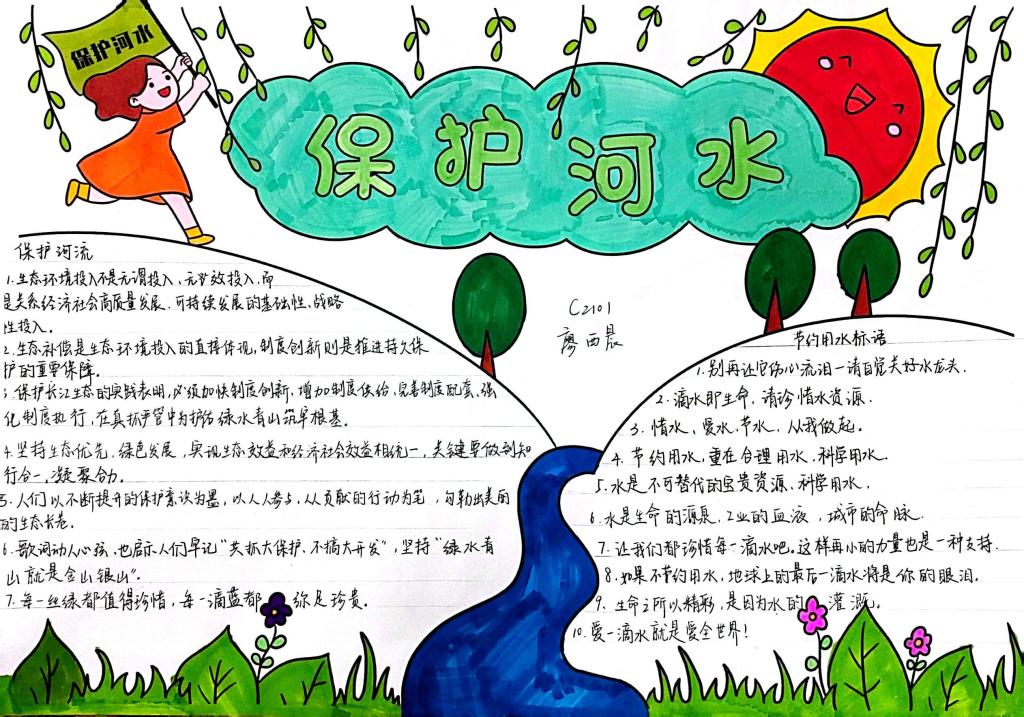 保护河水
保护河水
C2101
廖西晨
保护河流
1.生态环境投入不是无谓投入、无效投入,而
是关系经济社会高质量发展、可持续发展的基础性、战略
性投入。
2.生态补偿是生态环境投入的直接体现,制度创新则是推进持久保
护的重要保障。
3.保护长江生态的实践表明,必须加快制度创新,增加制度供给,完善制度配套,强
化制度执行,在真抓严管中为护佑绿水青山筑牢根基。
4.坚持生态优先、绿色发展,实现生态效益和经济社会效益相统一,关键要做到知
行合一,凝聚合力。
5.人们以不断提升的保护意识为墨,以人人参与、人人贡献的行动为笔,勾勒出美丽
的生态长卷。
6.歌词动人心弦,也启示人们牢记“共抓大保护、不搞大开发”,坚持“绿水青
山就是金山银山”。
7.每一丝绿都值得珍惜,每一滴蓝都 弥足珍贵。
节约用水标语
1.别再让它伤心流泪—请自觉关好水龙头.
2.滴水即生命,请珍惜水资源.
3.惜水、爱水、节水、从我做起.
4.节约用水,重在合理用水、科学用水.
5.水是不可替代的宝贵资源、科学用水.
6.水是生命的源泉、工业的血液、城市的命脉.
7.让我们都珍惜每一滴水吧。这样再小的力量也是一种支持.
8.如果不节约用水,地球上的最后一滴水将是你的眼泪.
9.生命之所以精彩,是因为水的 灌溉。
10.爱一滴水就是爱全世界!